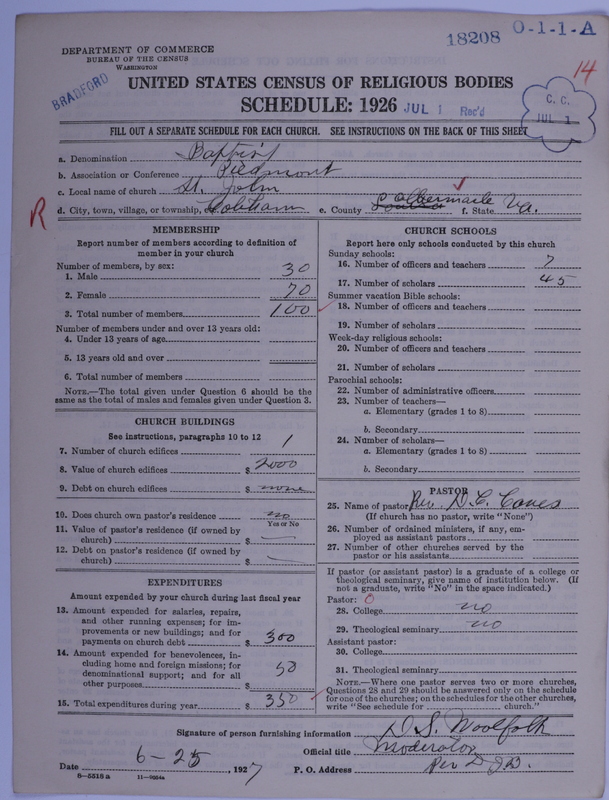 18208 O-1-1-A
DEPARTMENT OF COMMERCE
BUREAU OF THE CENSUS
WASHINGTON
BRADFORD
14
UNITED STATES CENSUS OF RELIGIOUS BODIES
SCHEDULE: 1926 JUL 1 Rec'd
C. C.
JUL 1
FILL OUT A SEPARATE SCHEDULE FOR EACH CHURCH. SEE INSTRUCTIONS ON THE BACK OF THIS SHEET
a. Denomination Baptist
b. Association or Conference Piedmont
c. Local name of church St. John
R
d. City, town, village, or township, etc. Cobham e. County Louisa Albemarle f. State Va.
MEMBERSHIP
Report number of members according to definition of
member in your church
Number of members, by sex:
1. Male 30
2. Female 70
3. Total number of members 100
Number of members under and over 13 years old:
4. Under 13 years of age
5. 13 years old and over
6. Total number of members
NOTE.—The total given under Question 6 should be the
same as the total of males and females given under Question 3.
CHURCH BUILDINGS
See instructions, paragraphs 10 to 12
7. Number of church edifices 1
8. Value of church edifices $ 2000
9. Debt on church edifices $ none
10. Does church own pastor's residence no
Yes or No
11. Value of pastor's residence (if owned by
church) $ —
12. Debt on pastor's residence (if owned by
church) $ —
EXPENDITURES
Amount expended by your church during last fiscal year
13. Amount expended for salaries, repairs,
and other running expenses; for im-
provements or new buildings; and for
payments on church debt $ 300
14. Amount expended for benevolences, in-
cluding home and foreign missions; for
denominational support; and for all
other purposes $ 50
15. Total expenditures during year $ 350
CHURCH SCHOOLS
Report here only schools conducted by this church
Sunday schools:
16. Number of officers and teachers 7
17. Number of scholars 45
Summer vacation Bible schools:
18. Number of officers and teachers
19. Number of scholars
Week-day religious schools:
20. Number of officers and teachers
21. Number of scholars
Parochial schools:
22. Number of administrative officers
23. Number of teachers—
a. Elementary (grades 1 to 8)
b. Secondary
24. Number of scholars—
a. Elementary (grades 1 to 8)
b. Secondary
PASTOR
25. Name of pastor Rev. D. C.
(If church has no pastor, write "None")
26. Number of ordained ministers, if any, em-
ployed as assistant pastors
27. Number of other churches served by the
pastor or his assistants
If pastor (or assistant pastor) is a graduate of a college or
theological seminary, give name of institution below. (If
not a graduate, write "No" in the space indicated.)
Pastor: 0
28. College no
29. Theological seminary no
Assistant pastor:
30. College
31. Theological seminary
NOTE.—Where one pastor serves two or more churches,
Questions 28 and 29 should be answered only on the schedule
for one of the churches; on the schedules for the other churches,
write "See schedule for church."
Signature of person furnishing information D. S. Woolfolk
Official title Moderator
Date 6-25, 1927 P. O. Address Per D J D.
8—5516a 11—9664a